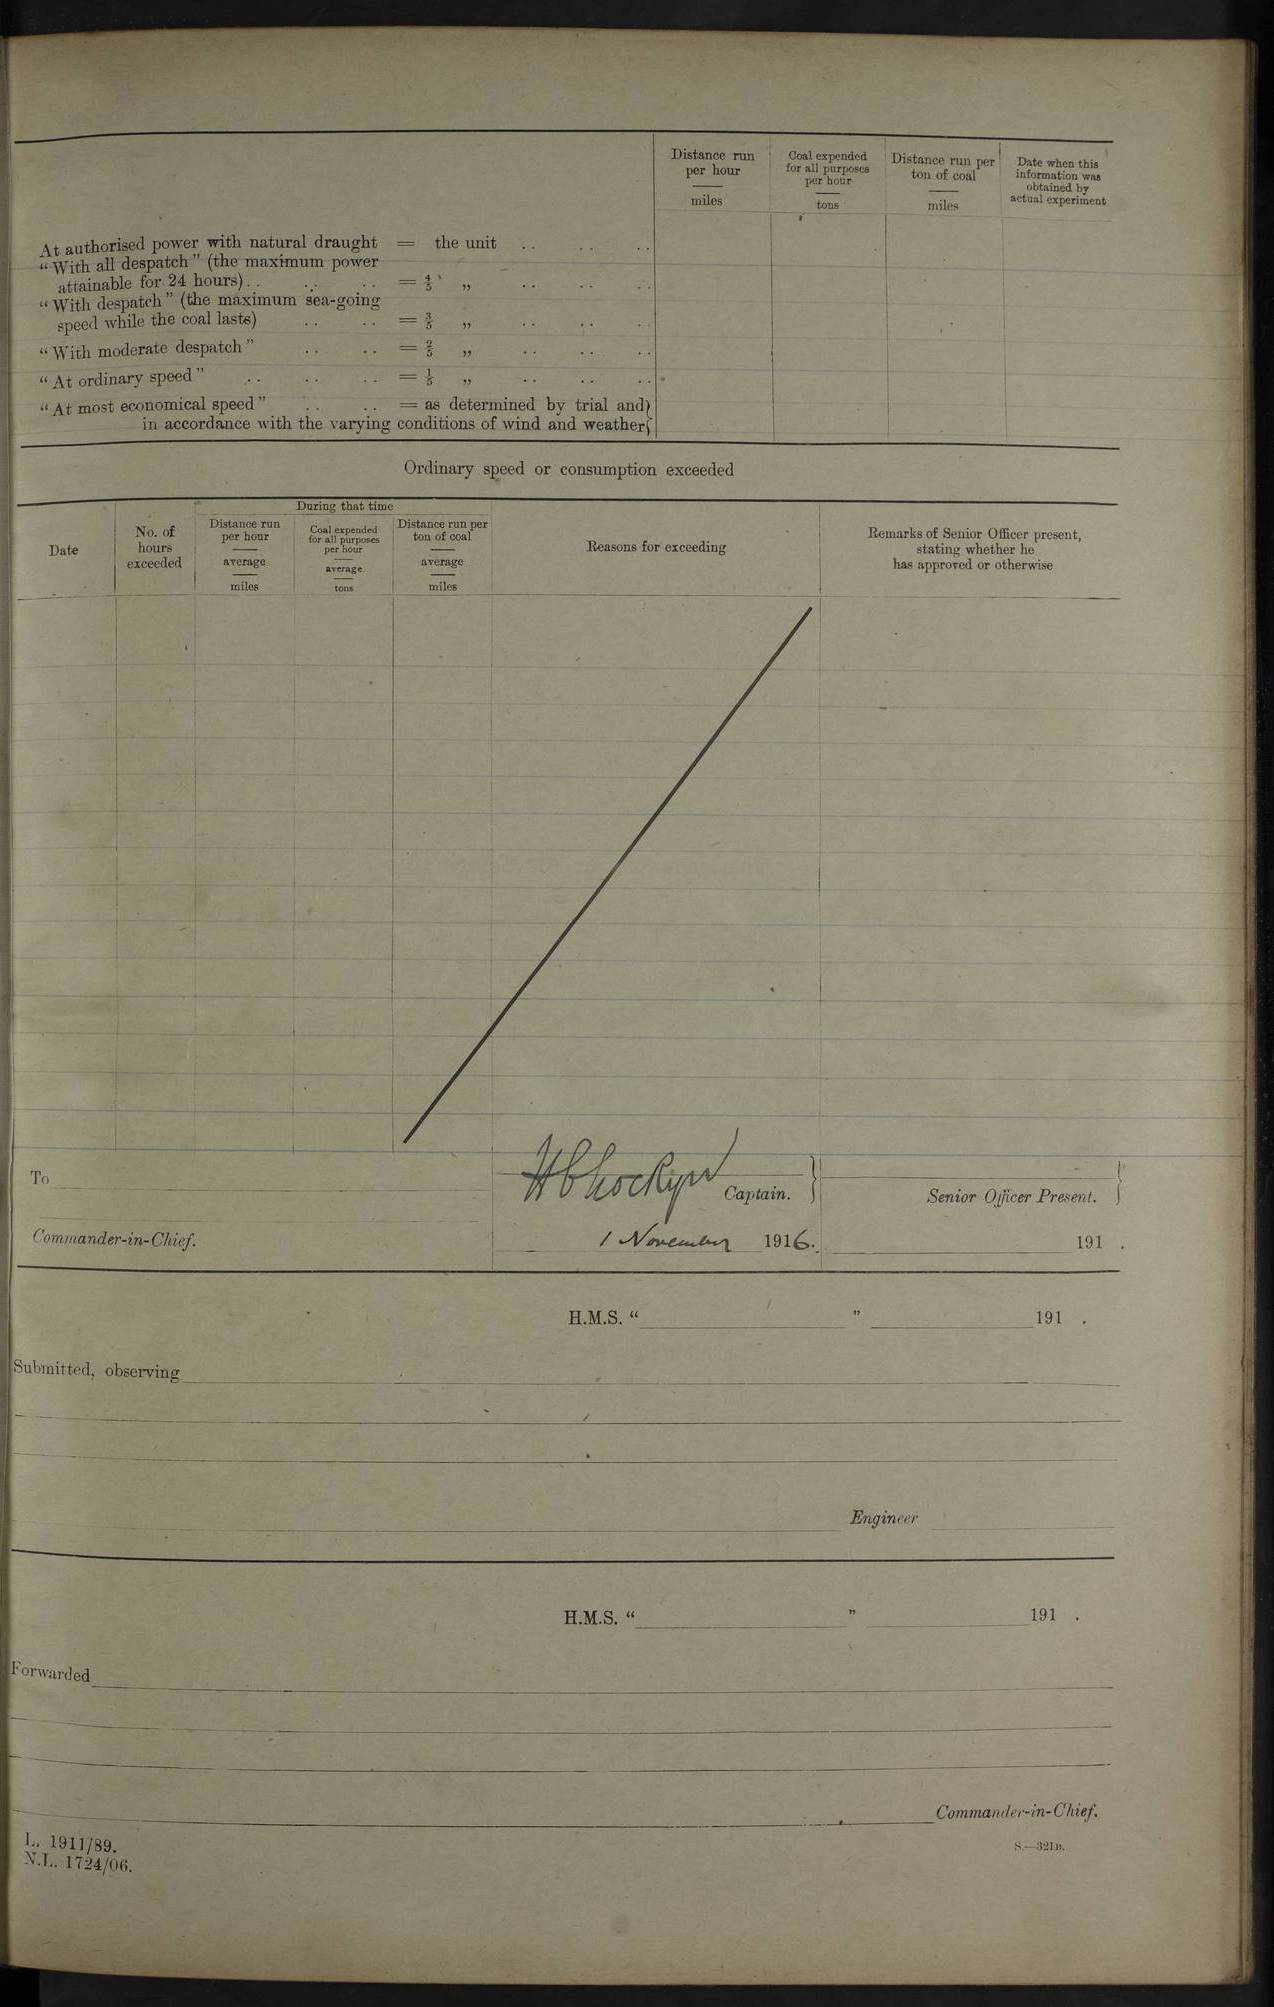 Distance run per hour miles
Coal expended for all purposes per hour tons
Distance run per ton of coal miles
Date when this information was obtained by actual experiment
At authorised power with natural draught = the unit .. .. ..
“With all despatch” (the maximum power
attainable for 24 hours) .. .. .. = 4/5 „ .. .. ..
“With despatch” (the maximum sea-going
speed while the coal lasts) .. .. = 3/5 „ .. .. ..
“With moderate despatch” .. .. = 2/5 „ .. .. ..
“At ordinary speed” .. .. .. = 1/5 „ .. .. ..
“At most economical speed” .. .. = as determined by trial and}
in accordance with the varying conditions of wind and weather}
Ordinary speed or consumption exceeded
During that time
Date
No. of hours exceeded
Distance run per hour average miles
Coal expended for all purposes per hour average tons
Distance run per ton of coal average miles
Reasons for exceeding
Remarks of Senior Officer present, stating whether he has approved or otherwise
To
Captain. }
Senior Officer Present. }
Commander-in-Chief.
1 November 1916.
191 .
H.M.S. “ ” 191 .
Submitted, observing
Engineer
H.M.S. “ ” 191 .
Forwarded
Commander-in-Chief.
L. 1911/89.
N.L. 1724/06.
S.—321B.